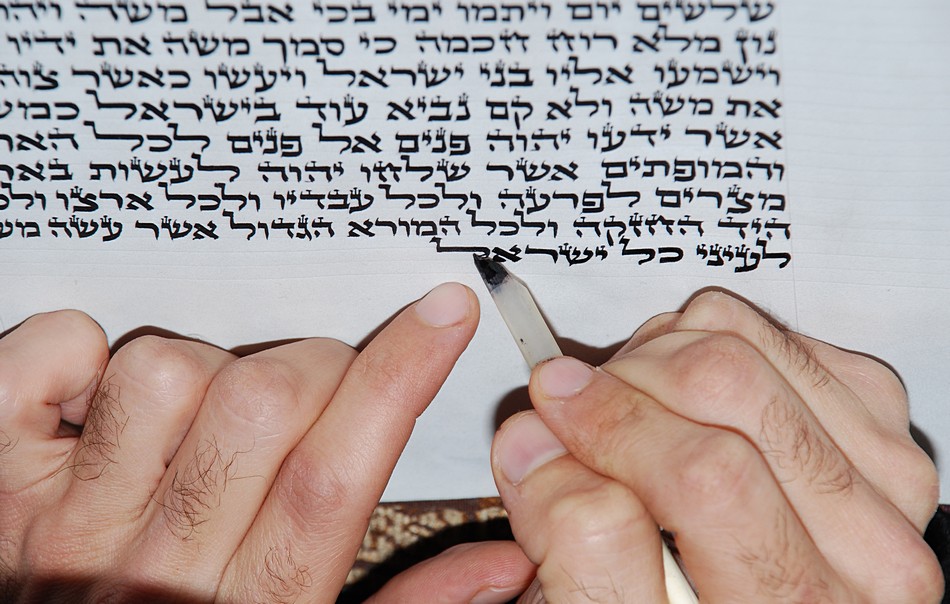 שלשים יום ויתמו ימי בכי אבל משה
נון מלא רוח חכמה כי סמך משה את ידיו
וישמעו אליו בני ישראל ויעשו כאשר צוה
את משה ולא קם נביא עוד בישראל כמש
אשר ידעו יהוה פנים אל פנים לכל האת
והמופתים אשר שלחו יהוה לעשות באר
מצרים לפרעה ולכל עבדיו ולכל ארצו ולכ
היד החזקה ולכל המורא הגדול אשר עשה מש
לעיני כל ישראל